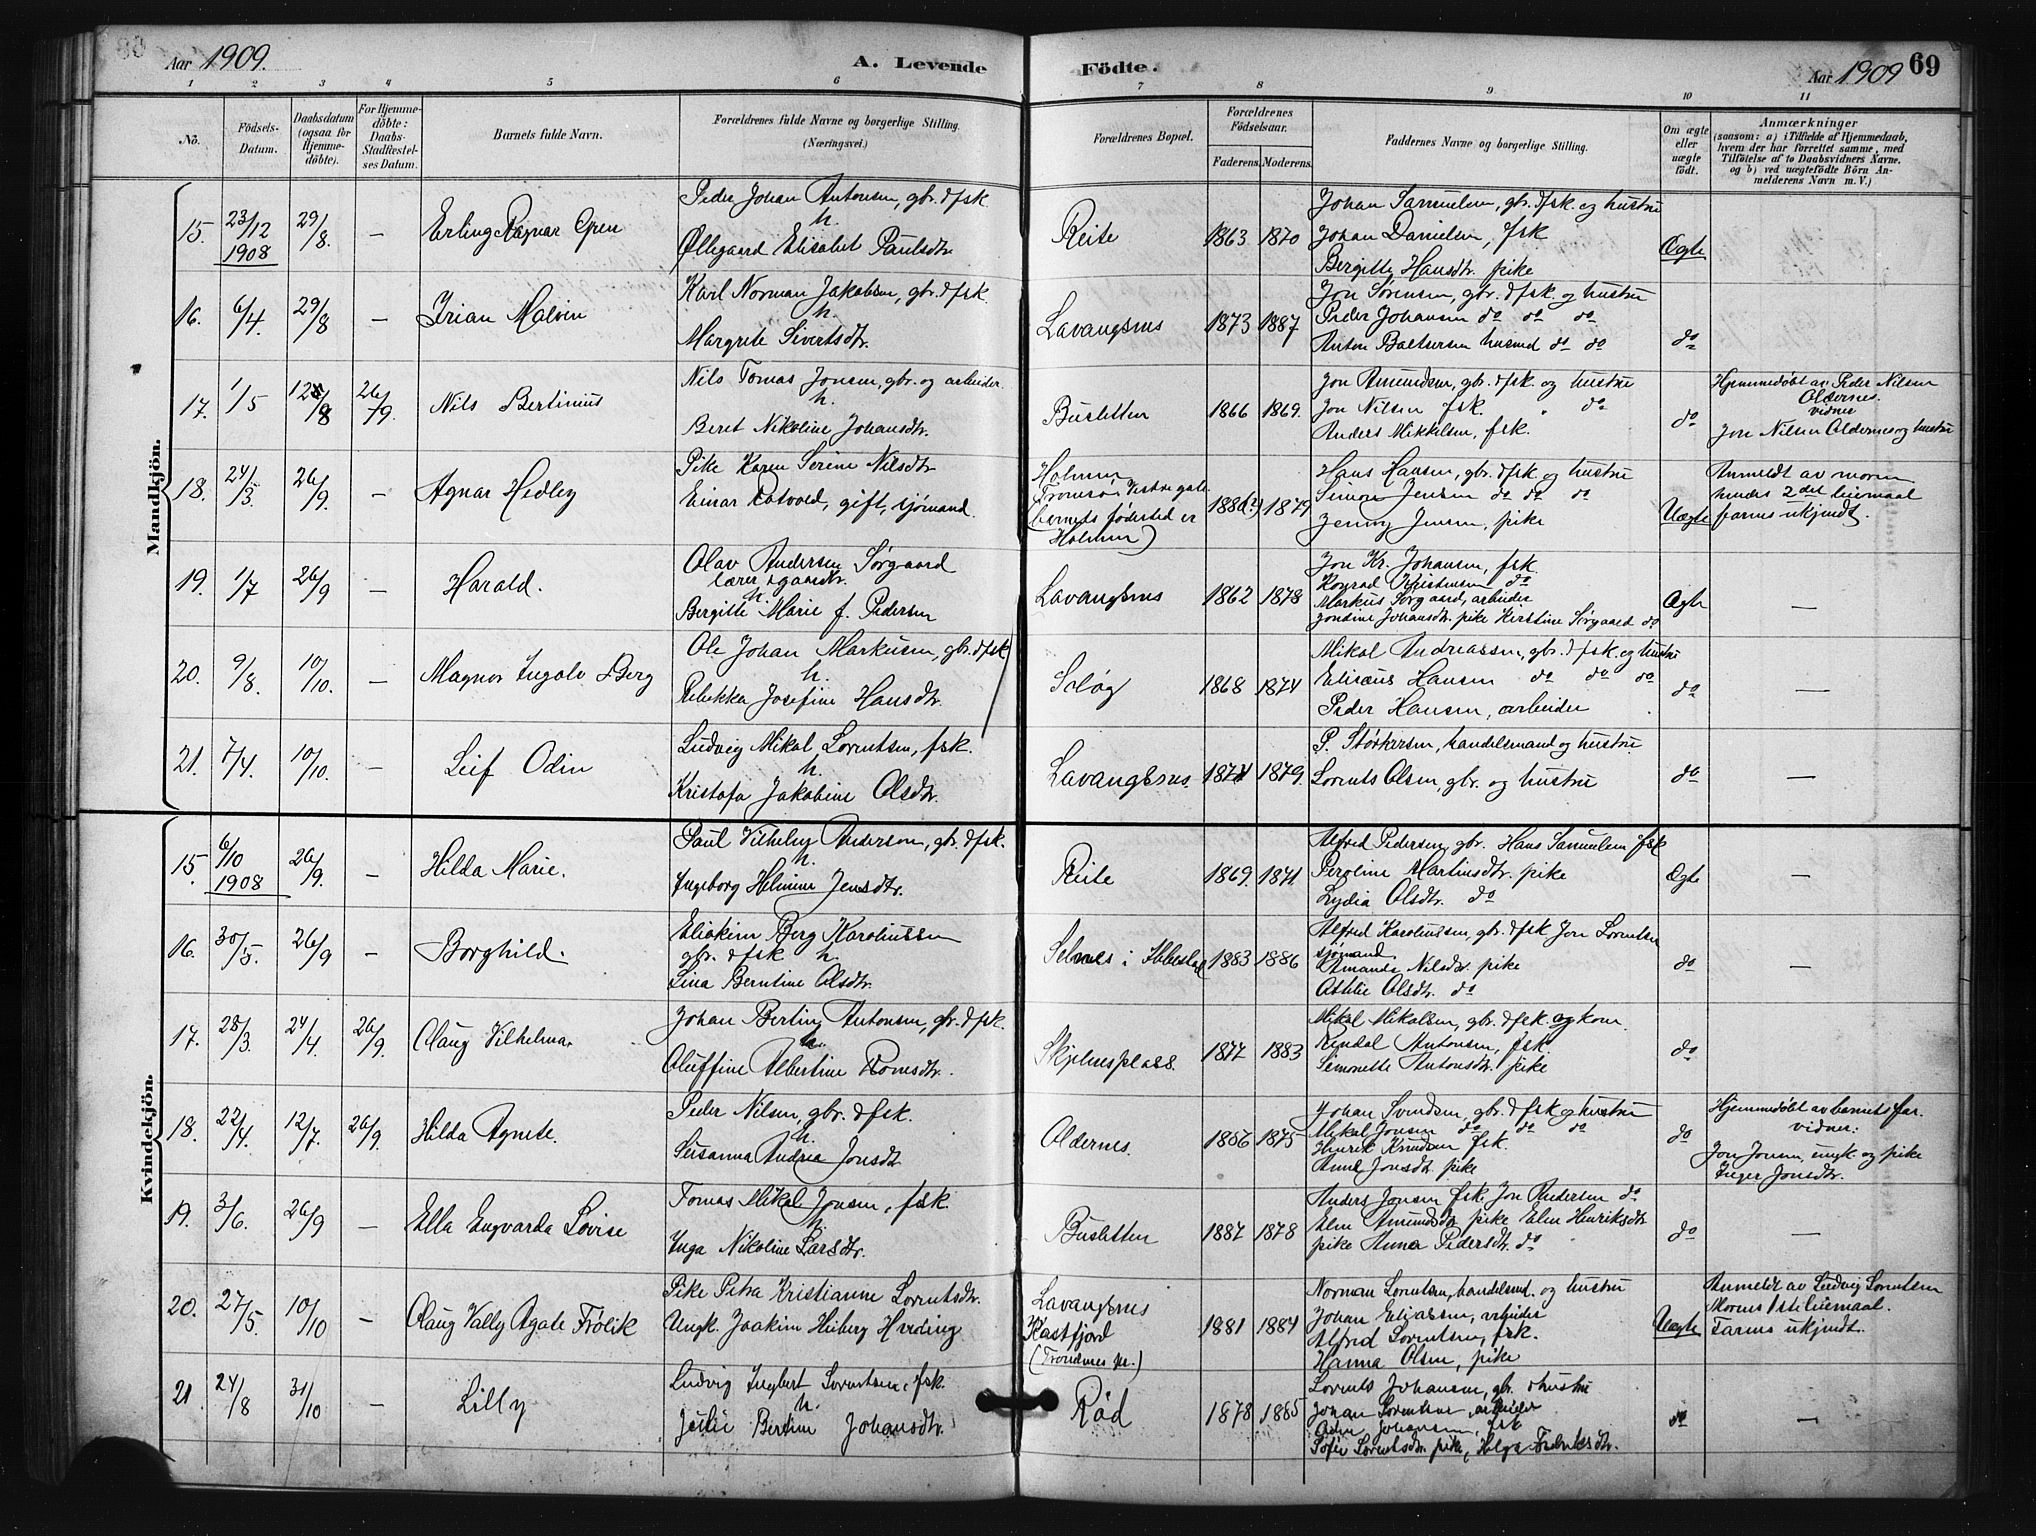 Aar 1909.
A. Levende
Fødte.
Aar 1909
69
1 2 3 4 5 6 7 8 9 10 11
No.
Fødsels-Datum.
Daabsdatum (ogsaa for Hjemmedøbte).
For Hjemmedøbte: Daabs-Stadfæstelses Datum.
Barnets fulde Navn.
Forældrenes fulde Navne og borgerlige Stilling. (Næringsvei.)
Forældrenes Bopæl.
Forældrenes Fødselsaar.
Faderens. Moderens.
Faddernes Navne og borgerlige Stilling.
Om ægte eller uægte født.
Anmærkninger
(saasom: a) i Tilfælde af Hjemmedaab, hvem der har forrettet samme, med Tilføielse af to Daabsvidners Navne, og b) ved uægtefødte Børn Anmelderens Navn m. V.)
Mandkjön.
15. 23/12 1908 29/8. — Erling Ragnar Gren
Peder Johan Antonsen, gbr. & fsk.
h.
Øllegaard Elisabet Paulsdtr.
Reite 1863 1870
Johan Samuelsen, gbr. & fsk. og hustru
Johan Danielsen, fsk
Bergitte Hansdtr. pike
Ægte
16. 6/4. 29/8 — Irian Malvin
Karl Norman Jakobsen, gbr. & fsk.
h.
Margrete Sivertsdtr.
Lavangsnes 1873 1887
Jon Sørensen, gbr. & fsk. og hustru
Peder Johansen do do do
Anton Baltsersen husmd do do
do
17. 1/5 26/9. Nils Bertinius
Nils Tomas Jonsen, gbr. og arbeider.
h.
Beret Nikoline Johansdtr.
Busletten 1866 1869.
Jon Amundsen, gbr. & fsk. og hustru
Jon Nilsen fsk. " do
Anders Mikkelsen, fsk.
do
Hjemmedøbt av Peder Nilsen
Oldernes.
vidner
Jon Nilsen Oldernes og hustru
18. 26/9 — Agnar Hedley
Pike Karen Serine Nilsdtr
Einar Rotvold, gift, sjømand.
Holmen,
Tromsø
(barnets fødested er
Holmen)
1879
Hans Hansen, gbr. & fsk. og hustru
Simon Jensen do do do
Jenny Jensen, pike
Uægte
Anmeldt av moren
hendes 2det leiemaal
farens ukjendt.
19. 1/7 26/9 — Harald.
Olav Andersen Sørgaard
lærer & gaardbr.
h.
Bergitte Marie f. Pedersen
Lavangsnes 1862 1878
Jon Kr. Johansen, fsk.
Konrad Kristensen do
Markus Sørgaard, arbeider
Jondine Johansdtr. pike Kirstine Sørgaard do
Ægte —
20. 9/8. 10/10. — Magnor Ingolv Berg
Ole Johan Markusen, gbr. & fsk
h.
Rebekka Josefine Hansdtr.
Seløg 1868 1874
Mikal Andreassen, gbr. & fsk og hustru
Elisæus Hansen do do do
Peder Hansen, arbeider
do —
21. 7/4. 10/10. — Leif Odin
Ludvig Mikal Lorentsen, fsk.
h.
Kristofa Jakobine Olsdtr.
Lavangsnes. 1879.
P. Størkersen, handelsmand og hustru
Lorents Olsen, gbr. og hustru
do —
Kvindekjön.
15. 6/10 1908 26/9. — Hilda Marie.
Paul Vilhelm Andersen, gbr. & fsk.
h.
Ingeborg Helmine Jensdtr.
Reite 1869. 1871.
Alfred Pedersen, gbr. Hans Samuelsen fsk
Peroline Martinsdtr. pike
Lydia Olsdtr. do
Ægte —
16. 30/5. 26/9 — Borghild.
Eliakim Berg Karoliussen
gbr. & fsk h.
Lina Berntine Olsdtr.
Selnes i Ibbestad 1883 1886
Alfred Karoliussen, gbr. & fsk Jon Lorentsen
sjømand
Amanda Nilsdtr. pike
Othilie Olsdtr. do
do —
17. 28/3. 24/4. 26/9. Olaug Vilhelma.
Johan Berting Antonsen, gbr. & fsk.
h.
Oluffine Albertine Tomsdtr.
Skjelnesplass. 1877 1883
Mikal Mikalsen, gbr. & fsk. og kone.
Rendal Antonsen, fsk.
Simonette Antonsdtr. pike
do
18. 22/4. 12/7. 26/9. Hilda Agnete.
Peder Nilsen, gbr. & fsk.
h.
Susanna Andrea Jonsdtr
Oldernes. 1875
Johan Svendsen, gbr. & fsk og hustru
Mikal Jonsen do do do
Henrik Knudsen fsk.
Anna Jonsdtr. pike
do
Hjemmedøbt av barnets far.
vidner:
Jon Jonsen, ungk. og pike
Inger Jonsdtr.
19. 3/6. 26/9 — Ella Engvarda Lovise
Tomas Mikal Jonsen, fsk.
h.
Inga Nikoline Larsdtr.
Busletten 1887 1878
Anders Jonsen fsk Jon Andersen do
Elen Amundsdtr pike Elen Henriksdtr
pike Anna Pedersdtr. do
do —
20. 27/5. 10/10 — Olaug Vally Agate Frölik
Pike Petra Kristianne Lorentsdtr.
Ungk. Joakim Heiberg Hveding
Lavangsnes
Kastfjord
(Trondenes pr.)
1881 1884
Norman Lorentsen, handelsmd. og hustru
Johan Eliassen, arbeider
Alfred Lorentsen, fsk.
Hanna Olsen, pike
Uægte
Anmeldt av Ludvig Lorentsen
Morens 1ste leiemaal.
Farens ukjendt.
21. 24/8 31/10 — Lilly
Ludvig Ingbert Lorentsen, fsk.
h.
Julie Bertine Johansdtr.
Röd 1878 1885
Lorents Johansen, gbr. & hustru
Johan Lorentsen arbeider
Johansen, fsk
Sofie Lorentsdtr. pike, Helga Fredriksdtr.
do —